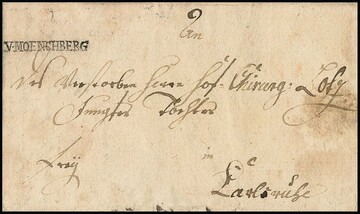 An
V.MOENCHBERG
Des Verstorben Herrn Hof-Chirurg:
Jungfer Tochter
frey
in
Carlsruhe